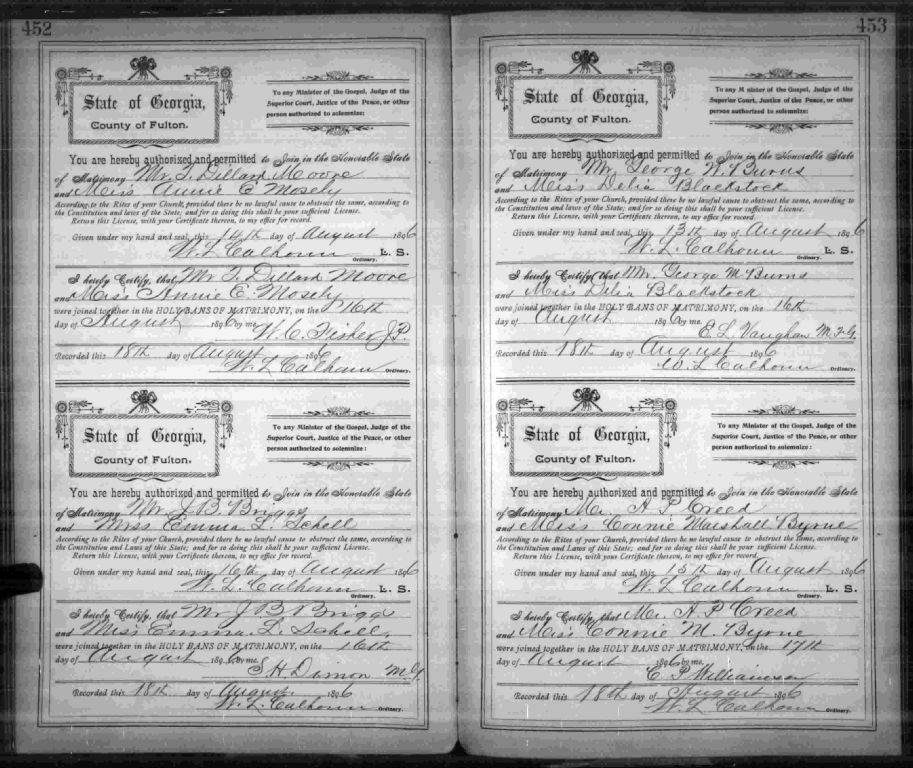 452
State of Georgia,
County of Fulton.
To any Minister of the Gospel, Judge of the
Superior Court, Justice of the Peace, or other
person authorized to solemnize:
You are hereby authorized and permitted to Join in the Honorable State
of Matrimony Mr. T. Dillard Moore
and Miss Annie E Mosely
According to the Rites of your Church, provided there be no lawful cause to obstruct the same, according to
the Constitution and laws of the State; and for so doing this shall be your sufficient License.
Return this License, with your Certificate thereon, to my office for record.
Given under my hand and seal, this 14th day of August 1896
W. L Calhoun L. S.
Ordinary.
I hereby Certify, that Mr T. Dillard Moore
and Miss Annie E. Mosely
were joined together in the HOLY BANS OF MATRIMONY, on the 16th
day of August 1896 by me
W. C. Fisher J.P.
Recorded this 18th day of August 1896
W. L Calhoun Ordinary.
State of Georgia,
County of Fulton.
To any Minister of the Gospel, Judge of the
Superior Court, Justice of the Peace, or other
person authorized to solemnize:
You are hereby authorized and permitted to Join in the Honorable State
of Matrimony Mr. J B Briggs
and Miss Emma L Schell
According to the Rites of your Church, provided there be no lawful cause to obstruct the same, according to
the Constitution and Laws of this State; and for so doing this shall be your sufficient License.
Return this License, with your Certificate thereon, to my office for record.
Given under my hand and seal, this 16th day of August 1896
W. L. Calhoun L. S.
Ordinary.
I hereby Certify, that Mr J B Briggs
and Miss Emma. L. Schell.
were joined together in the HOLY BANS OF MATRIMONY, on the 16th
day of August 1896 by me.
S. H. M. G.
Recorded this 18th day of August. 1896
W. L. Calhoun Ordinary.
453
State of Georgia,
County of Fulton.
To any Minister of the Gospel, Judge of the
Superior Court, Justice of the Peace, or other
person authorized to solemnize:
You are hereby authorized and permitted to Join in the Honorable State
of Matrimony Mr. George W. Burns
and Miss Delia Blackstock
According to the Rites of your Church, provided there be no lawful cause to obstruct the same, according to
the Constitution and laws of the State; and for so doing this shall be your sufficient License.
Return this License, with your Certificate thereon, to my office for record.
Given under my hand and seal, this 13th day of August 1896
W. L. Calhoun L. S.
Ordinary.
I hereby Certify, that Mr. George M. Burns
and Miss Delia Blackstock
were joined together in the HOLY BANS OF MATRIMONY, on the 16th
day of August 1896 by me
E. L. Vaughan M.F.G.
Recorded this 18th day of August 1896
W. L Calhoun Ordinary.
State of Georgia,
County of Fulton.
To any Minister of the Gospel, Judge of the
Superior Court, Justice of the Peace, or other
person authorized to solemnize:
You are hereby authorized and permitted to Join in the Honorable State
of Matrimony Mr. A P Creed
and Miss Connie Marshall Byrne
According to the Rites of your Church, provided there be no lawful cause to obstruct the Same, according to
the Constitution and Laws of this State; and for so doing this shall be your sufficient License.
Return this License, with your Certificate thereon, to my office for record.
Given under my hand and seal, this 15th day of August 1896
W. L Calhoun L. S.
Ordinary.
I hereby Certify, that Mr. A P Creed
and Miss Connie M. Byrne
were joined together in the HOLY BANS OF MATRIMONY, on the 17th
day of August 1896 by me.
E. P. Williamson
Recorded this 18th day of August 1896
W. L Calhoun Ordinary.